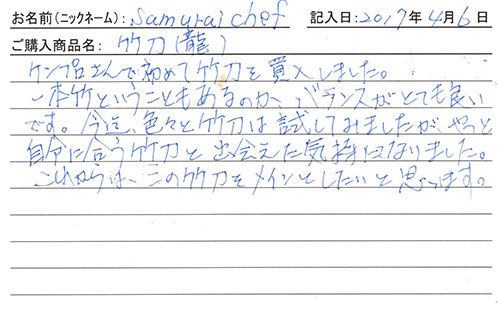 お名前(ニックネーム): samurai chef 記入日:2017年4月6日
ご購入商品名: 竹刀(龍)
ケンプロさんで初めて竹刀を買入しました。
一本竹ということもあるのか、バランスがとても良い
です。今迄、色々と竹刀は試してみましたが、やっと
自分に合う竹刀と出会えた気持になりました。
これからは、この竹刀をメインとしたいと思います。